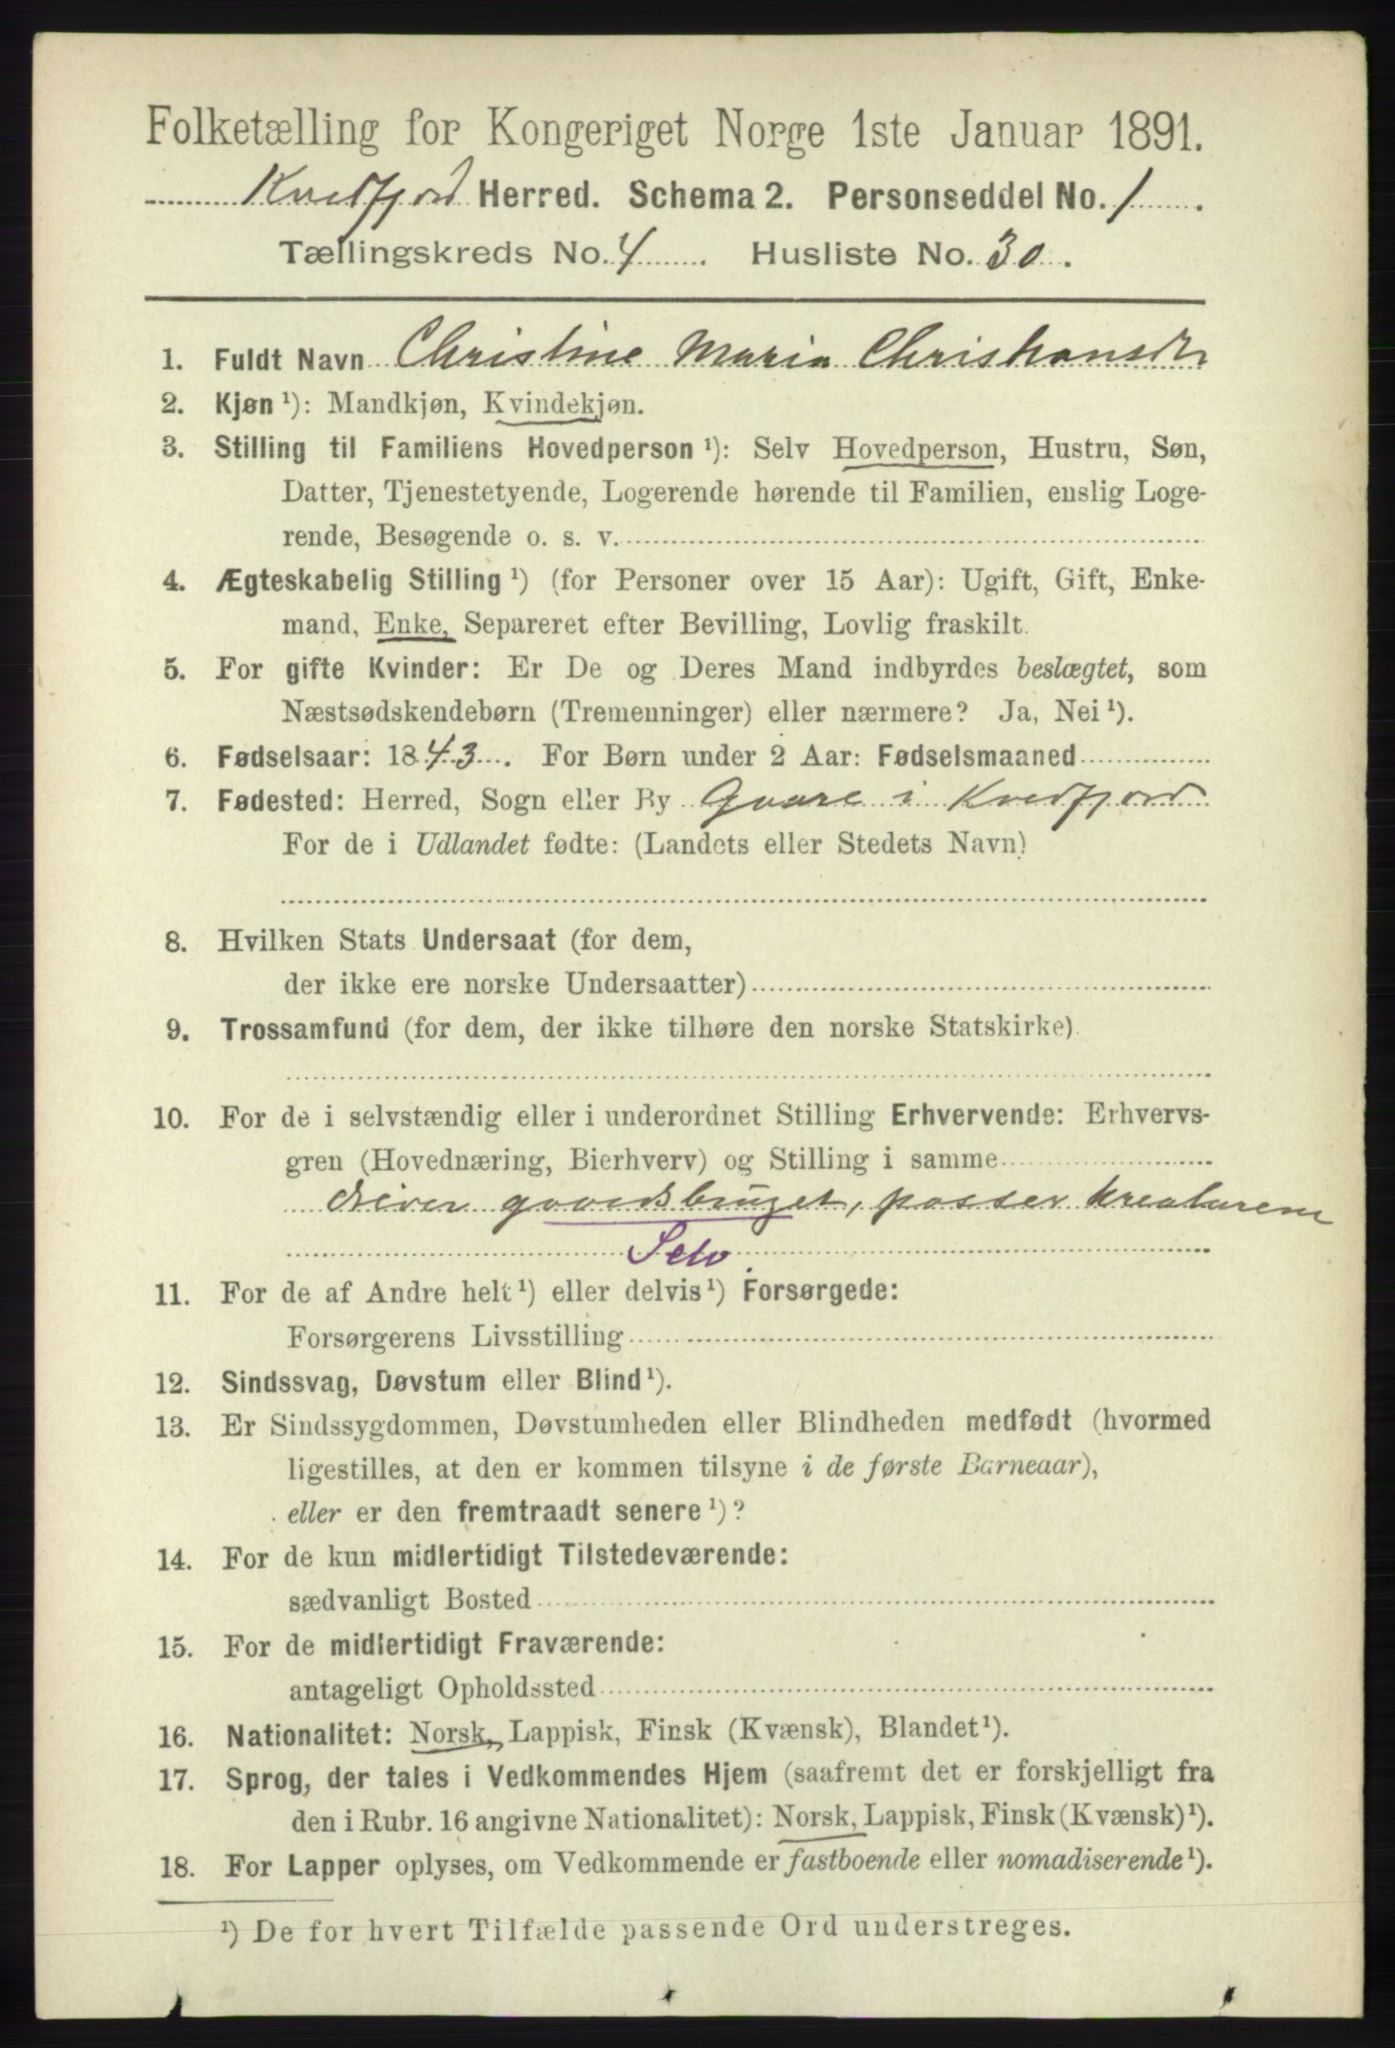 Folketælling for Kongeriget Norge 1ste Januar 1891.
Kvedfjord Herred. Schema 2. Personseddel No. 1
Tællingskreds No. 4 Husliste No. 30.
1. Fuldt Navn Christine Maria Christiansdr
2. Kjøn ¹): Mandkjøn, Kvindekjøn.
3. Stilling til Familiens Hovedperson ¹): Selv Hovedperson, Hustru, Søn,
Datter, Tjenestetyende, Logerende hørende til Familien, enslig Loge-
rende, Besøgende o. s. v.
4. Ægteskabelig Stilling ¹) (for Personer over 15 Aar): Ugift, Gift, Enke-
mand, Enke, Separeret efter Bevilling, Lovlig fraskilt.
5. For gifte Kvinder: Er De og Deres Mand indbyrdes beslægtet, som
Næstsødskendebørn (Tremenninger) eller nærmere? Ja, Nei ¹).
6. Fødselsaar: 1843. For Børn under 2 Aar: Fødselsmaaned
7. Fødested: Herred, Sogn eller By Gaare i Kvedfjord
For de i Udlandet fødte: (Landets eller Stedets Navn)
8. Hvilken Stats Undersaat (for dem,
der ikke ere norske Undersaatter)
9. Trossamfund (for dem, der ikke tilhøre den norske Statskirke)
10. For de i selvstændig eller i underordnet Stilling Erhvervende: Erhvervs-
gren (Hovednæring, Bierhverv) og Stilling i samme
driver gaardsbruget, passer kreaturene
Selv.
11. For de af Andre helt ¹) eller delvis ¹) Forsørgede:
Forsørgerens Livsstilling
12. Sindssvag, Døvstum eller Blind ¹).
13. Er Sindssygdommen, Døvstumheden eller Blindheden medfødt (hvormed
ligestilles, at den er kommen tilsyne i de første Barneaar),
eller er den fremtraadt senere ¹)?
14. For de kun midlertidigt Tilstedeværende:
sædvanligt Bosted
15. For de midlertidigt Fraværende:
antageligt Opholdssted
16. Nationalitet: Norsk, Lappisk, Finsk (Kvænsk), Blandet ¹).
17. Sprog, der tales i Vedkommendes Hjem (saafremt det er forskjelligt fra
den i Rubr. 16 angivne Nationalitet): Norsk, Lappisk, Finsk (Kvænsk) ¹).
18. For Lapper oplyses, om Vedkommende er fastboende eller nomadiserende ¹).
¹) De for hvert Tilfælde passende Ord understreges.